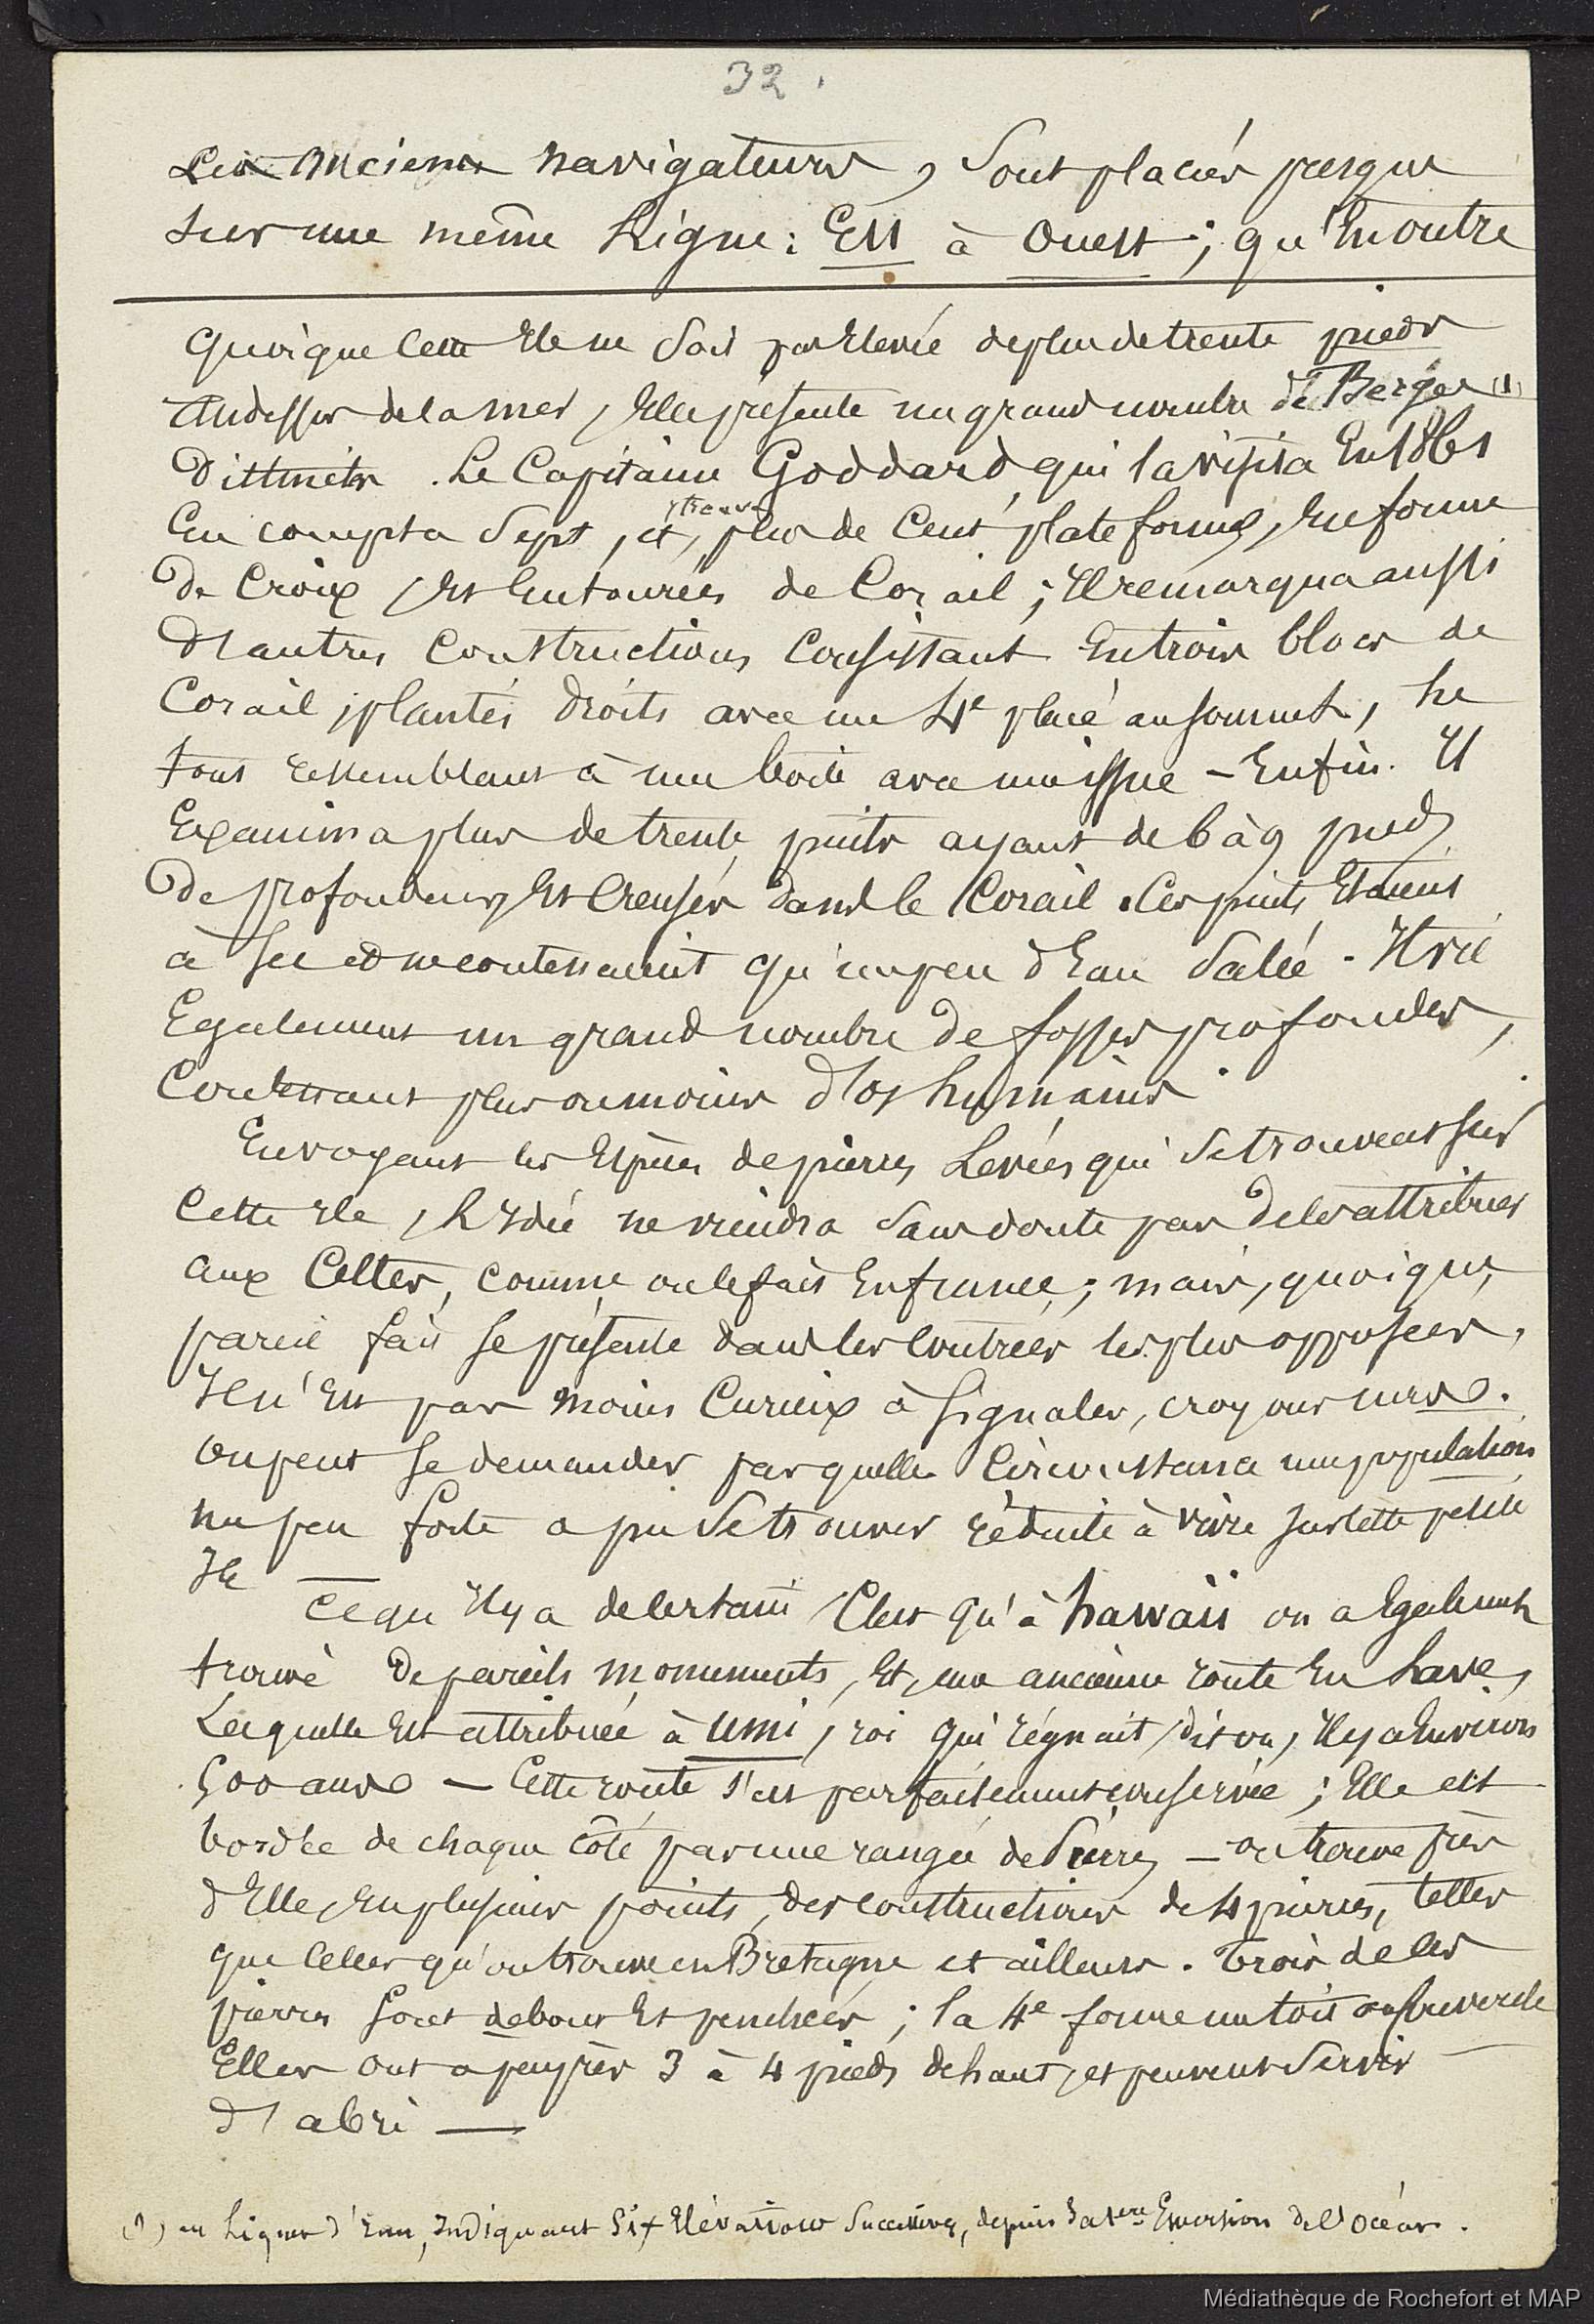 32.
Les Anciens navigateurs, Sont placées presque
Sur une même Ligne : Est à Ouest ; qu'En outre
Quoique Cette Ile ne Soit pas Elevée de plus de trente pieds
Audessus de la mer, Elle présente un grand nombre de Berges (1)
Distinctes. Le Capitaine Goddard, qui la visita En 1861
En compta Sept, et, trouva plus de Cent plateformes, En forme
De Croix, Et Entourées de Corail ; Il remarqua aussi
D'autres Constructions Consistant En trois blocs de
Corail, plantés droits avec un 4e placé au Sommet, Le
tout ressemblant à une boite avec une issue – Enfin. Il
Examina plus de trente puits ayant de 6 à 9 pieds
De profondeur, Et Creusés dans le Corail. Ces puits Etaient
à Sec et ne contenaient qu'un peu d'Eau Salée. Il vit
Egalement un grand nombre de fosses profondes,
Contenant plus ou moins d'os humains.
En voyant les Espèces de pierres Levées qui Se trouvent Sur
Cette Ile, L'Idée ne viendra Sans doute pas de les attribuer
aux Celtes, comme on le fait En france ; mais, quoique,
pareil fait Se présente dans les Contrées les plus opposées,
Il n'Est pas moins Curieux à Signaler, croyons nous.
On peut Se demander par quelle Circonstance une population
un peu forte a pu Se trouver réduite à vivre Sur Cette petite
Ile
Ce qu'Il y a de Certain C'est qu'à hawaii on a Egalement
trouvé de pareils monuments, Et, une ancienne route En Lave,
Laquelle Est attribuée à Umi, roi qui régnait, dit on, Il y a Environ
500 ans – Cette route s'est parfaitement conservée ; Elle est
bordée de chaque Côté par une rangée de Pierres – on trouve près
d'Elle, En plusieurs points, des constructions de 4 pierres, telles
que Celles qu'on trouve en Bretagne et ailleurs. Trois de Ces
pierres Sont debout Et penchées ; la 4e forme un toit ou Couvercle
Elles ont a peu près 3 à 4 pieds de haut, et peuvent Servir
d'abri —
(1) ou Lignes d'Eau, Indiquant Six Elévations Successives, depuis la 1ère Emersion de l'océan.
Médiathèque de Rochefort et MAP